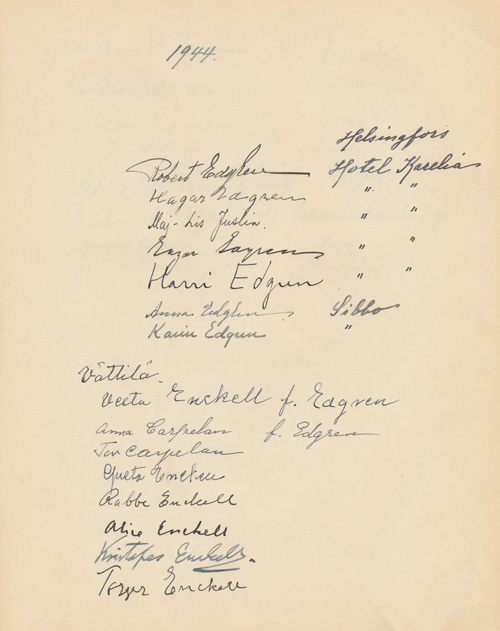 1944.
Helsingfors
Robert Edgren Hotel Karelia
Hagar Edgren " "
Maj-Lis Juslin. " "
Edgren " "
Harri Edgren " "
Anna Edgren Sibbo
Karin Edgren "
Vättilä.
Veeta Enckell f. Edgren
Anna Carpelan f. Edgren
Tor Carpelan
Greta Enckell
Rabbe Enckell
Alice Enckell
Kristofer Enckell.
Enckell